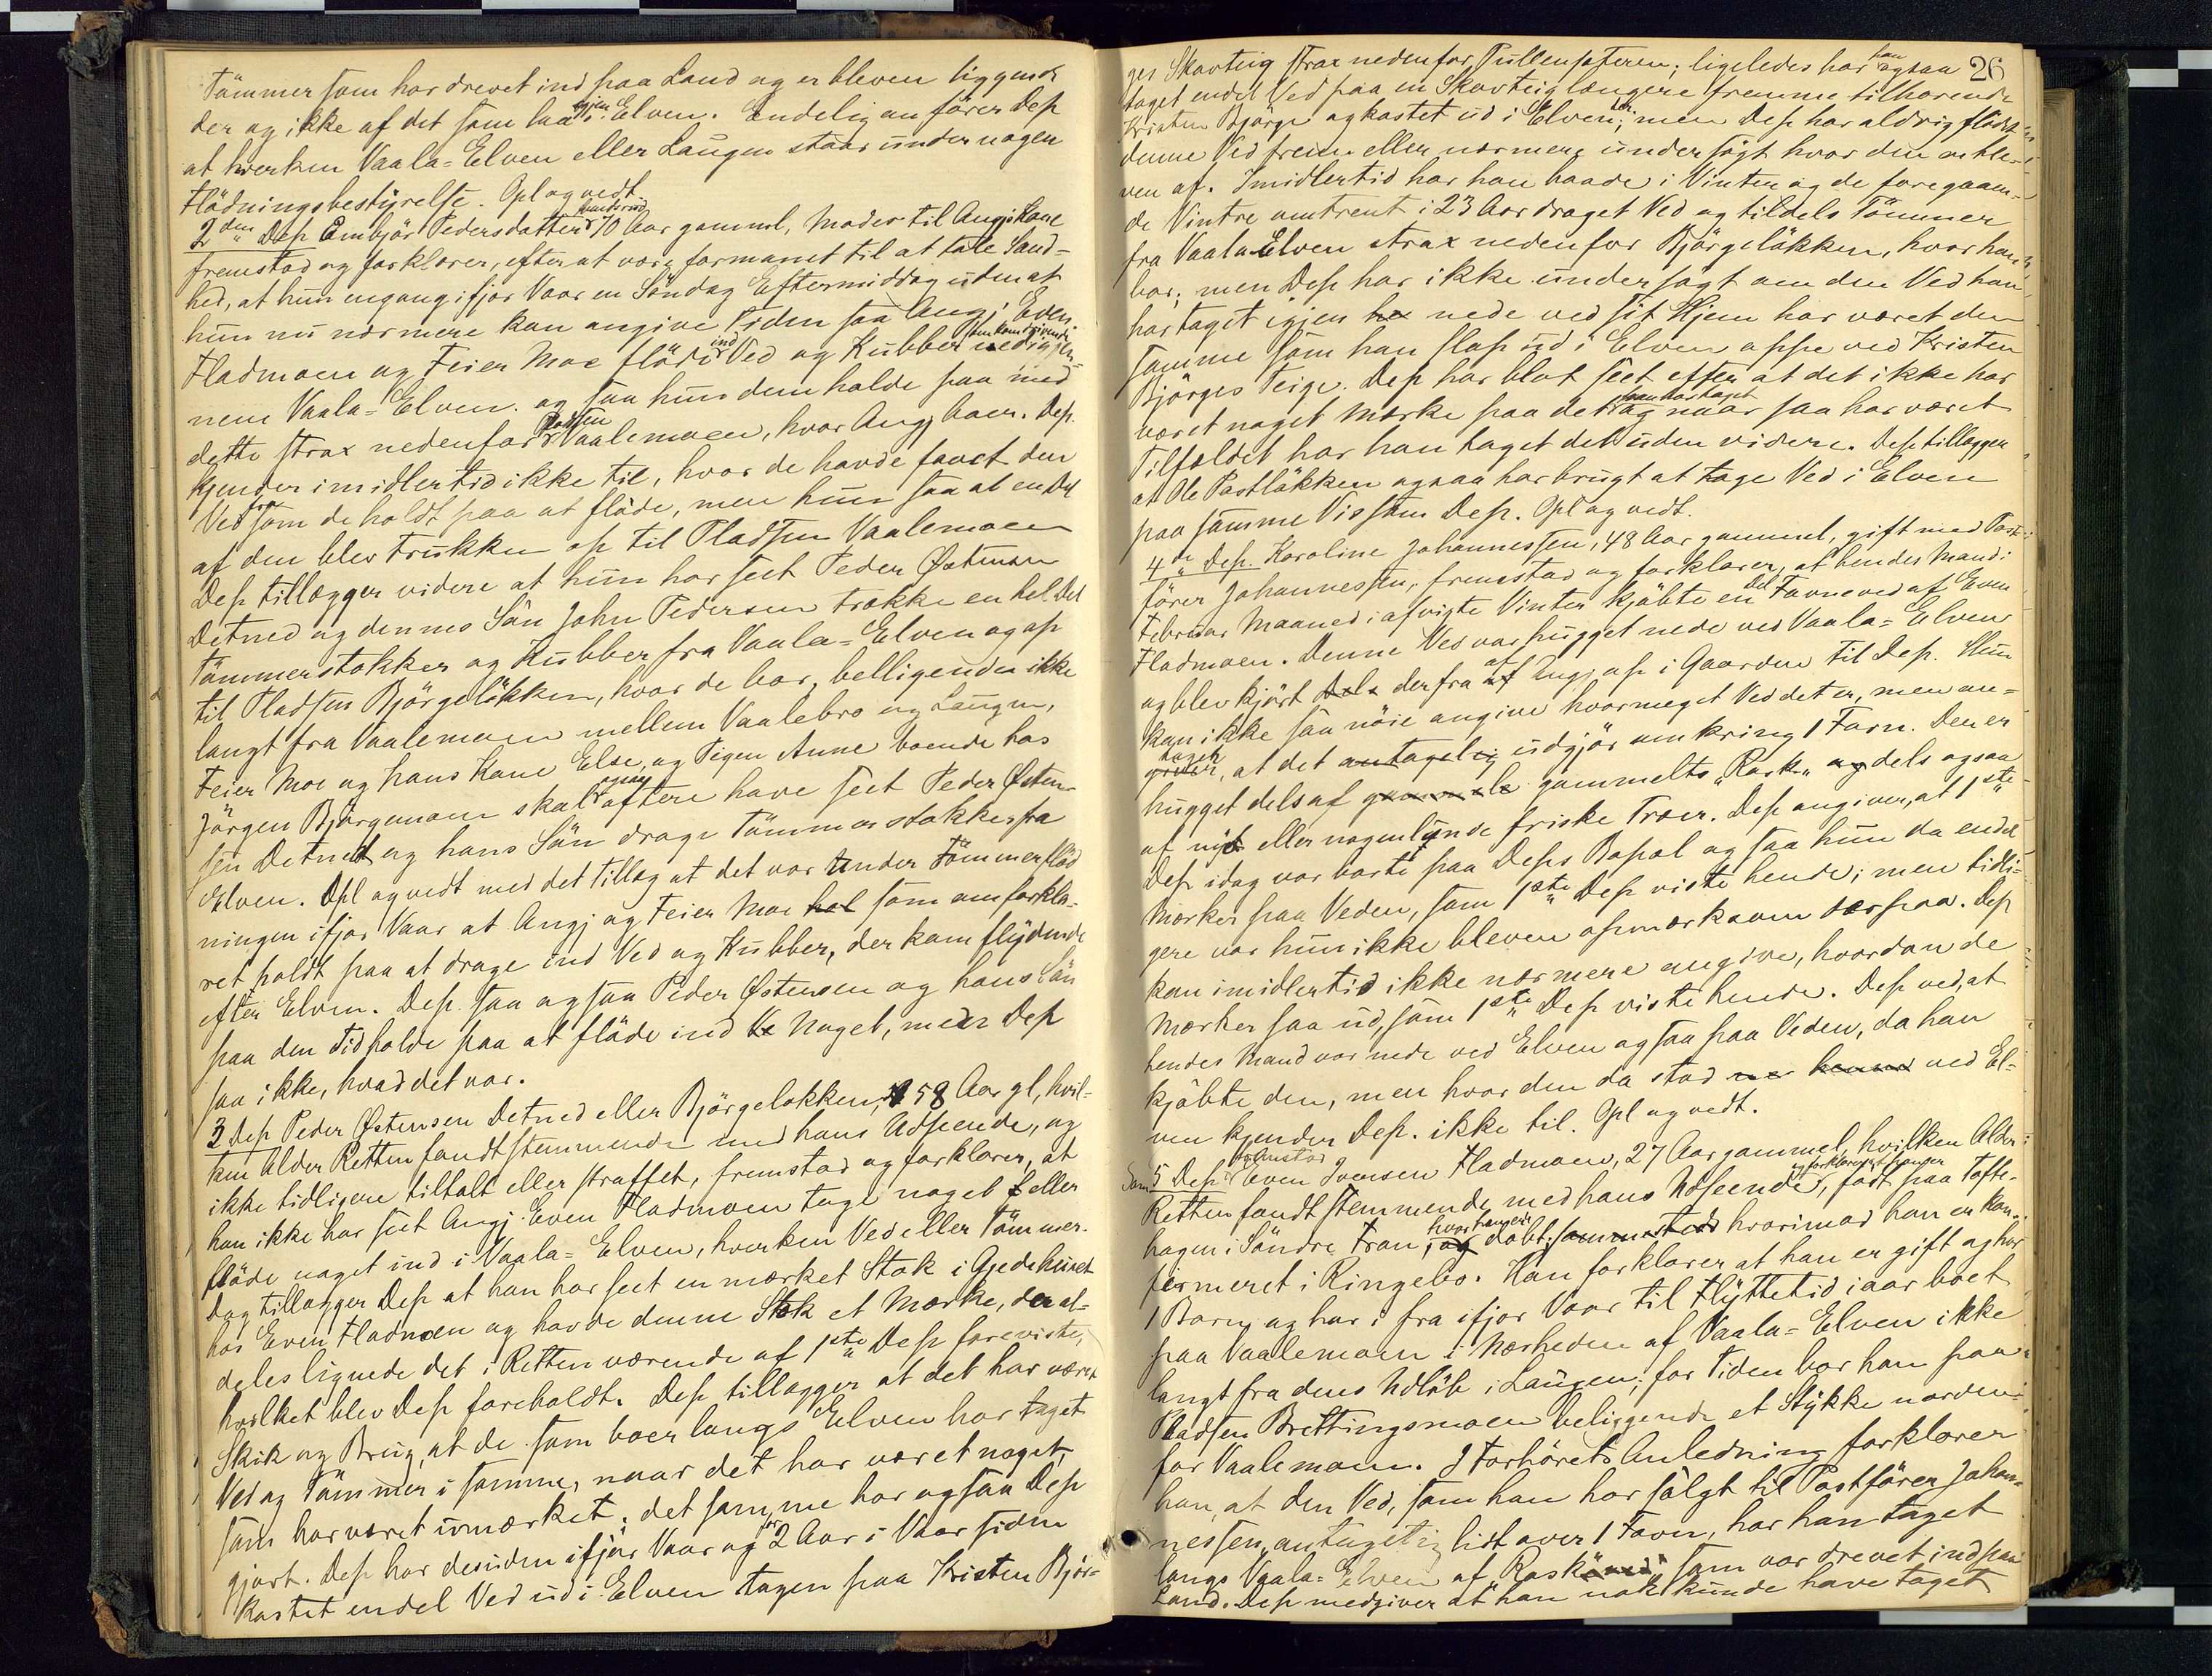 Tömmer som har drevet ind paa Land og er bleven liggende
der og ikke af det som laa igjen i Elven. Endelig anförer Dep
at hverken Vaala-Elven eller Laugen staar under nogen
Flödningsbestyrelse. Opl og vedt.
2den Dep Embjör Pedersdatter 70 Aar gammel, Moder til Angj Kone
fremstod og forklarer, efter at være formanet til at tale Sand-
hed, at hun engang ifjor Vaar en Söndag Eftermiddag uden at
hun nu nærmere kan angive Tiden saa Angj. Even
Fladmoen og Feier Moe flöde ind Ved og Kubber som kom drivende ned igjen-
nem Vaala-Elven. og saa hun dem holde paa med
dette strax nedenfor Pladsen Vaalemoen, hvor Angj boer. Dep.
kjender imidlertid ikke til, hvor de havde faaet den
Ved fra som de holdt paa at flöde, men hun saa at en Del
af den blev trukken op til Pladsen Vaalemoen
Dep tillægger videre at hun har seet Peder Østensen
Detned og dennes Sön John Pedersen trække en hel Del
Tömmerstokker og Kubber fra Vaala-Elven og op
til Pladsen Björgelökken, hvor de bor, belligende ikke
langt fra Vaalemoen mellem Vaalebro og Laugen,
Feier Moe og hans Kone Else, og Pigen Anne boende hos
Jörgen Björgemoen skal ogsaa oftere have seet Peder Østen-
sen Detned og hans Sön drage Tömmerstokker fra
Elven. Opl og vedt med det tillæg at det var under Tömmerflöd
ningen ifjor Vaar at Angj og Feier Moe hol som omforkla-
ret holdt paa at drage ind Ved og Kubber, der kom flydende
efter Elven. Dep. saa ogsaa Peder Østensen og hans Sön
paa den Tid holde paa at flöde ind Ve noget, men Dep
saa ikke, hvad det var.
3 Dep Peder Østensen Detned eller Björgelokken, 58 Aar gl, hvil-
ken Alder Retten fandt stemmende med hans Udseende, og
ikke tidligere tiltalt eller straffet, fremstod og forklarer, at
han ikke har seet Angj. Even Fladmoen tage noget f eller
flöde noget ind i Vaala-Elven, hverken Ved eller Tömmer.
Dog tillægger Dep at han har seet en mærket Stok i Gjedehuset
hos Even Fladmoen og havde denne Stok et Mærke, der al-
deles lignede det i Retten værende af 1ste Dep foreviste,
hvilket blev Dep foreholdt. Dep tillægger at det har været
Skik og Brug, at de som boer langs Elven har taget
Ved og Tömmer i samme, naar det har været noget,
som har været umærket; det samme har ogsaa Dep
gjort. Dep har desuden ifjor Vaar og for 2 Aar i Vaar siden
kastet endel Ved ud i Elven tagen paa Kristen Björ-
26
ges Skovteig strax nedenfor Pullensæteren; ligeledes har han ogsaa
taget endel Ved paa en Skovteig længere fremme tilhørende
Kristen Björge og kastet ud i Elven; men Dep har aldrig flödet
denne Ved frem eller nærmere undersögt hvor den er ble-
ven af. Imidlertid har han baade i Vinter og de foregaaen-
de Vintre omtrent i 23 Aar draget Ved og tildels Tömmer
fra Vaala-Elven strax nedenfor Björgelökken, hvor han
bor; men Dep har ikke undersøgt om den Ved han
har taget igjen her nede ved sit Hjem har været den
samme som han slap ud i Elven oppe ved Kristen
Björges Teige. Dep har blot seet efter at det ikke har
været noget Mærke paa det han har taget og naar saa har været
Tilfældet har han taget det uden videre. Dep tillægger
at Ole Postlökken ogsaa har brugt at tage Ved i Elven
paa samme Vis som Dep. Opl og vedt.
4de Dep. Karoline Johannessen, 48 Aar gammel, gift med Post-
förer Johannessen, fremstod og forklarer, at hendes Mand i
Februar Maaned i afvigte Vinter kjöbte en Del Favneved af Even
Fladmoen. Denne Ved var hugget nede ved Vaala-Elven
og blev kjört dels derfra af Angj op i Gaarden til Dep. Hun
kan ikke saa nöie angive hvormeget Ved det er, men an-
tager, at det antagelig udgjör omkring 1 Favn. Den er
hugget dels af gammele gammelts "Rask" og dels ogsaa
af nyt eller nogenlunde friske Træer. Dep angiver, at 1ste
Dep idag var borte paa Deps Bopæl og saa hun da endel
Mærker paa Veden, som 1ste Dep viste hende; men tidli-
gere var hun ikke bleven opmærksom derpaa. Dep
kan imidlertid ikke nærmere angive, hvordan de
Mærker saa ud, som 1ste Dep viste hende. Dep ved, at
hendes Mand var nede ved Elven og saa paa Veden, da han
kjöbte den, men hvor den da stod ved El-
ven kjender Dep. ikke til. Opl og vedt.
Som 5 Dep fremstod Even Iversen Fladmoen, 27 Aar gammel, hvilken Alder
Retten fandt stemmende med hans Udseende, og forklarer at han er födt paa Tofte-
hagen i Söndre Fron, hvor han er og döbt, sammesteds hvorimod han er kon-
firmeret i Ringebo. Han forklarer at han er gift og har
1 Barn og har i fra ifjor Vaar til Flyttetid iaar boet
paa Vaalemoen i Nærheden af Vaala-Elven ikke
langt fra dens Udløb i Laugen; for Tiden bor han paa
Pladsen Brettingsmoen beliggende et Stykke norden-
for Vaalemoen. I Forhörets Anledning forklarer
han, at den Ved, som han har solgt til Postförer Johan-
nessen, antagelig lidt over 1 Favn, har han taget
langs Vaala-Elven af Rask som var drevet ind paa
Land. Dep medgiver at han nok kunde have taget